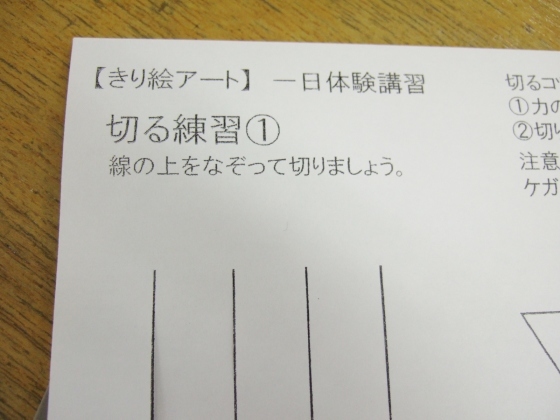 【きり絵アート】 一日体験講習
切る練習①
線の上をなぞって切りましょう。
切るコ
①力の
②切り
注意
ケガ